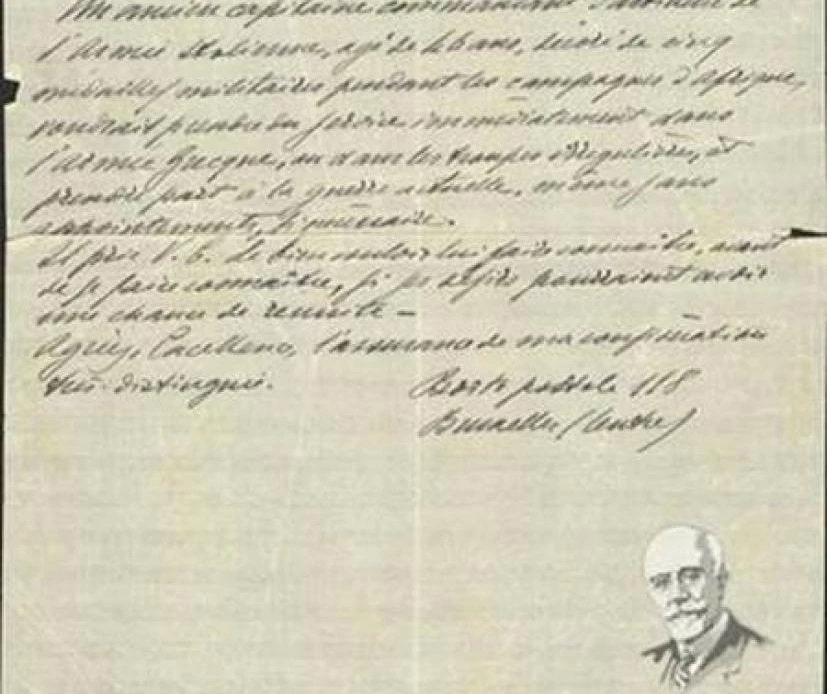 Un ancien capitaine commandant d'artillerie de
l'Armée Italienne, agé de 46 ans, décoré de cinq
médailles militaires pendant les campagnes d'Afrique,
voudrait prendre du service immédiatement dans
l'armée Grecque, ou dans les troupes irrégulières, et
prendre part à la guerre actuelle, même sans
appointements,
Il prie V. E. de bien vouloir lui faire connaître, avant
de se faire connaître, si ses désirs pourraient avoir
une chance de réussite —
Agréez, Excellence, l'assurance de ma considération
très-distinguée.
Boite postale 118
Bruxelles (Centre)